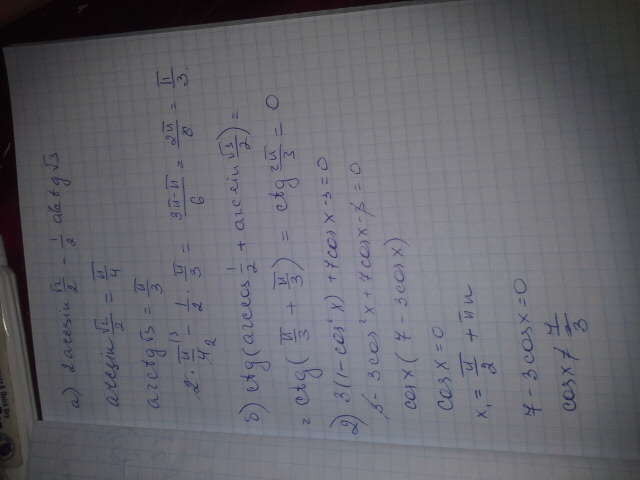 а) 2 arcsin √2/2 - 1/2 arctg √3
arcsin √2/2 = π/4
arctg √3 = π/3
2 · π/4 - 1/2 · π/3 = 3π-π/6 = 2π/6 = π/3.
б) ctg(arccos 1/2 + arcsin √3/2) =
= ctg(π/3 + π/3) = ctg 2π/3 = 0
2) 3(1-cos²x) + 7cosx-3=0
3-3cos²x + 7cosx-3 = 0
cosx(7-3cosx)
cosx=0
x₁ = π/2 + πn
7-3cosx=0
cosx≠ 7/3